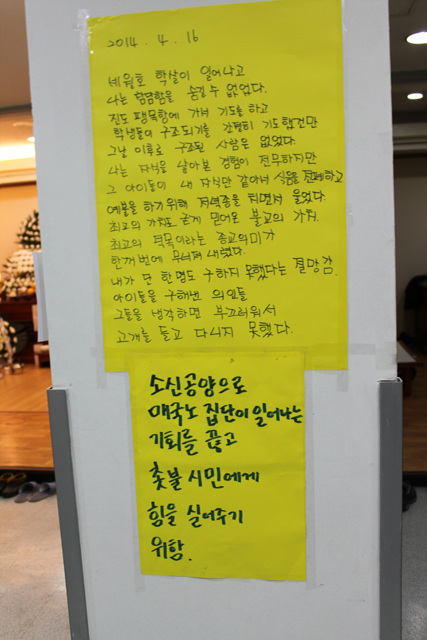 2014. 4. 16
세월호 학살이 일어나고
나는 참담함을 숨길 수 없었다.
진도 팽목항에 가서 기도를 하고
학생들이 구조되기를 간절히 기도했건만
그날 이후로 구조된 사람은 없었다.
나는 자식을 낳아본 경험이 전무하지만
그 아이들이 내 자식만 같아서 식음을 전폐하고
예불을 하기 위해 저녁종을 치면서 울었다.
최고의 가치로 굳게 믿어온 불교의 가치.
최고의 덕목이라는 종교의미가
한꺼번에 무너져 내렸다.
내가 단 한명도 구하지 못했다는 절망감.
아이들을 구해낸 의인들
그들을 생각하면 부끄러워서
고개를 들고 다니지 못했다.
소신공양으로
매국노 집단이 일어나는
기회를 끊고
촛불 시민에게
힘을 실어주기
위함.